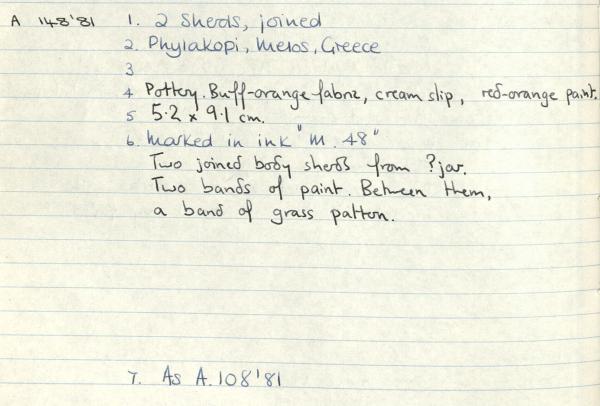 A 148'81 1. 2 Sherds, joined
2. Phylakopi, Melos, Greece
3
4 Pottery. Buff-orange fabric, cream slip, red-orange paint.
5 5.2 x 9.1 cm.
6. Marked in ink "M. 48"
Two joined body sherds from ?jar.
Two bands of paint. Between them,
a band of grass pattern.
7. As A.108'81